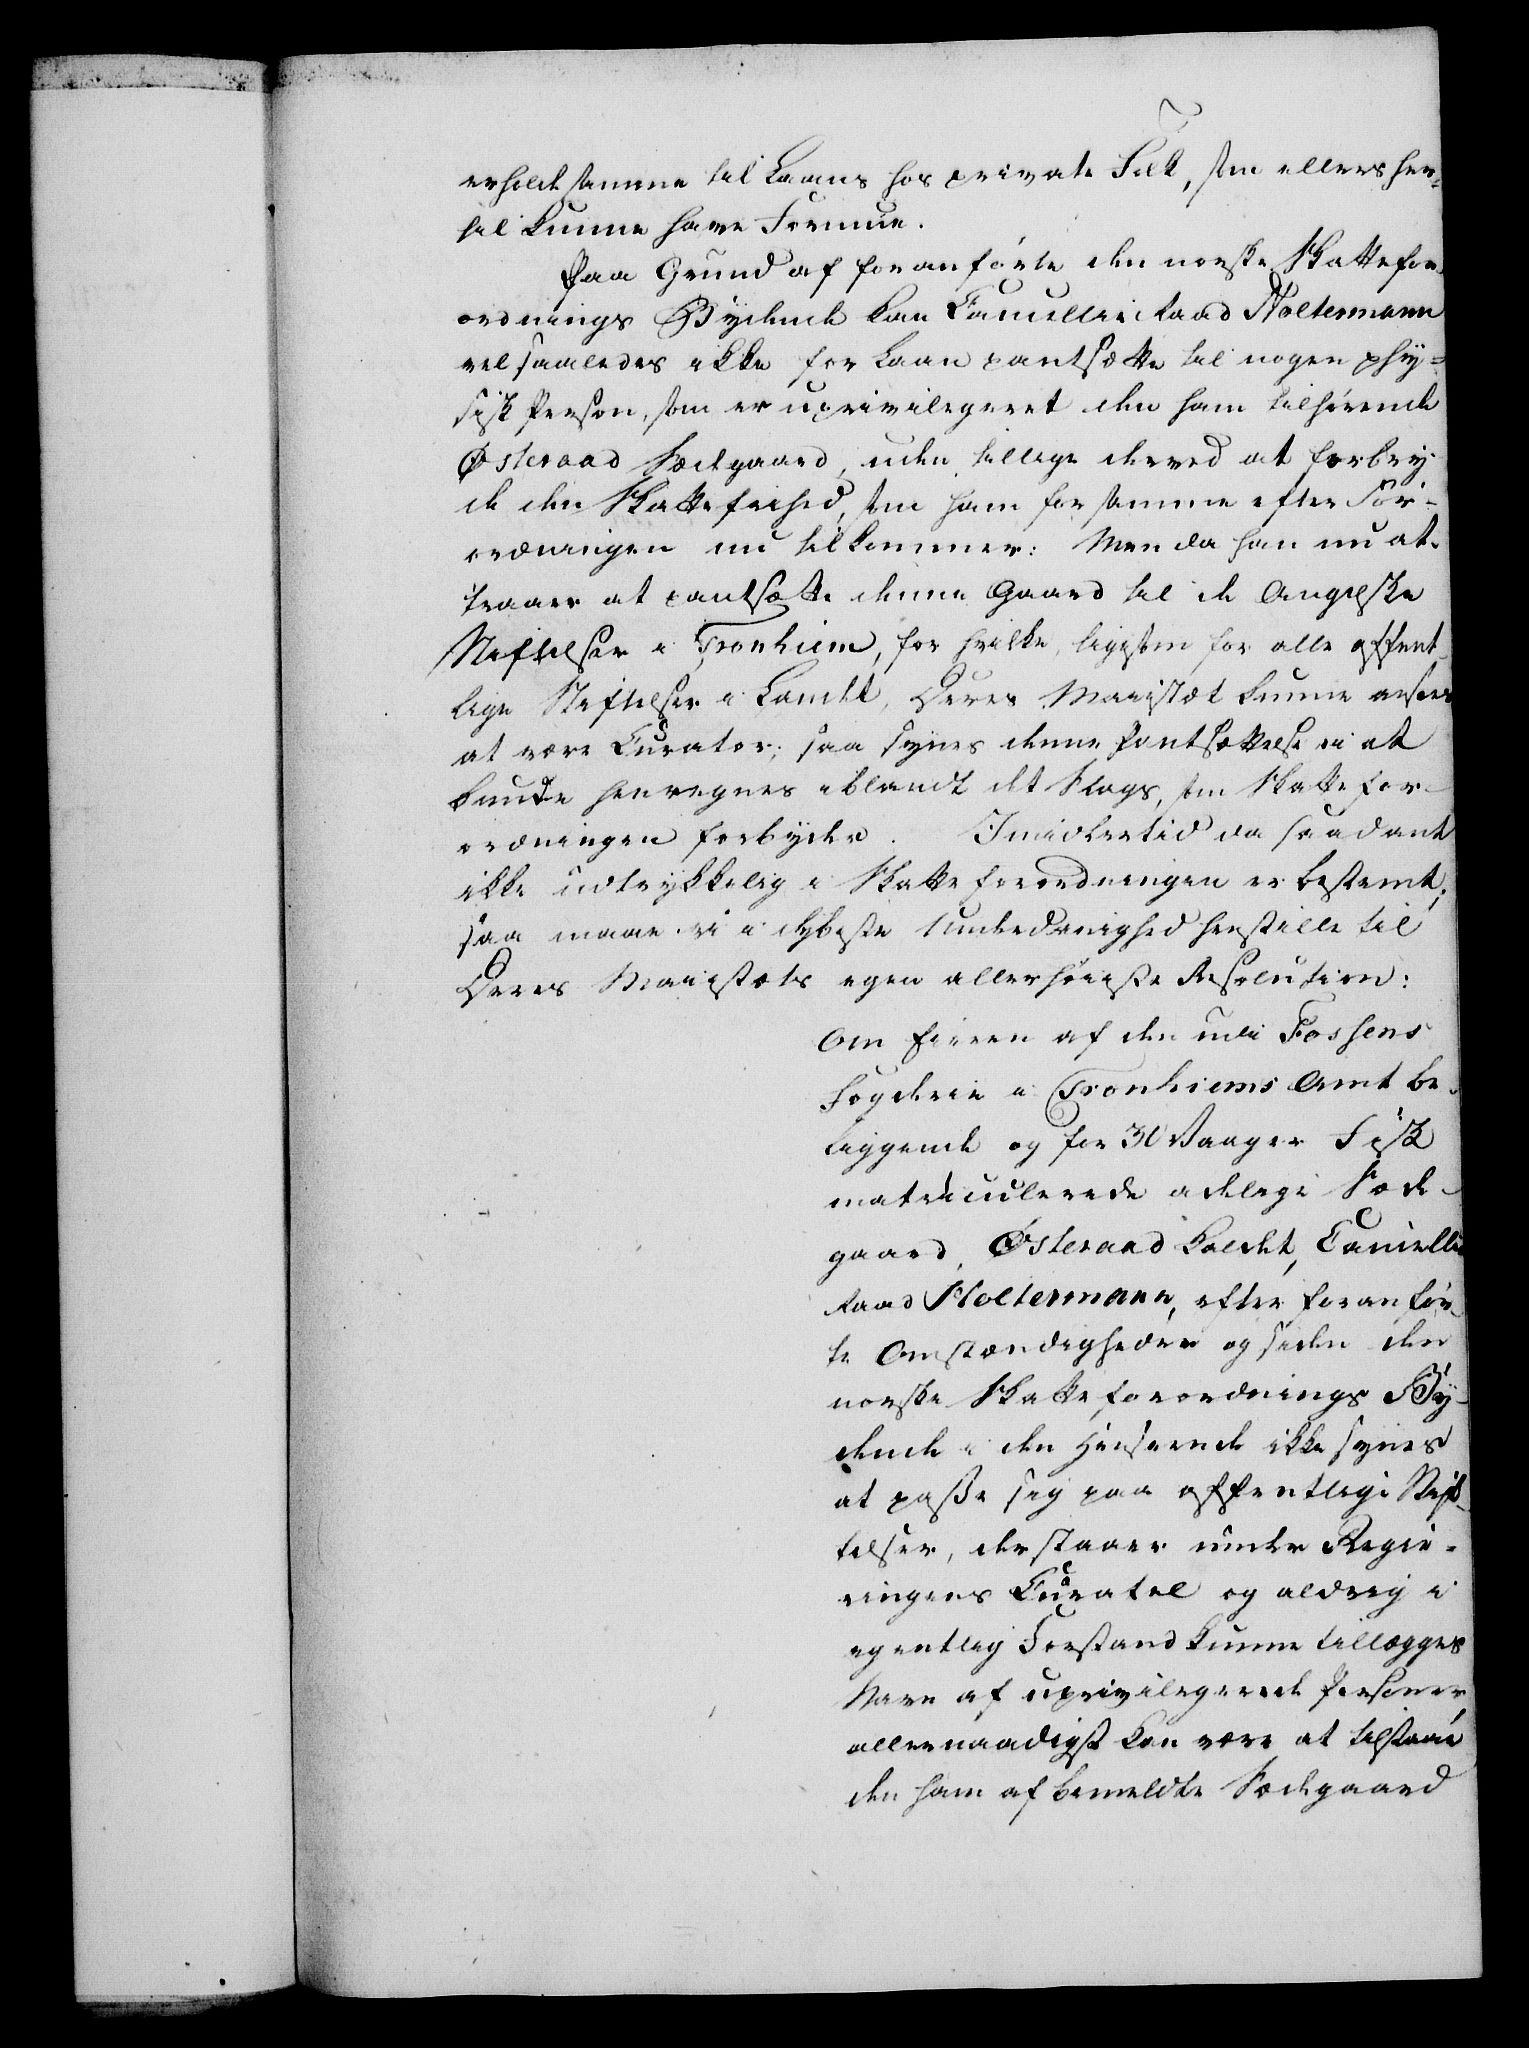 erholde samme til Laans hos private Folk, som ellers her-
til kunne have Formue.
Paa Grund af foranførte den norske Skattefor-
ordnings Bydende kan Cancellieraad Holtermann
vel saaledes ikke for Laan pantsætte til nogen phy-
sisk Person, som er uprivilegeret den ham tilhørende
Østeraad Sædegaard, uden tillige derved at forbry-
de den Skattefrihed, som ham for samme efter For-
ordningen nu tilkommer: Men da han nu at-
traaer at pantsætte denne Gaard til de Angelske
Stiftelser i Tronhiem, for hvilke, ligesom for alle offent-
lige Stiftelser i Landet, Deres Maiestæt kunne ansees
at være Curator; saa synes denne Pantsættelse ei at
burde henregnes iblandt det Slags, som Skattefor-
ordningen forbyder. Imidlertid da saadant
ikke udtrykkelig i Skatteforordningen er bestemt;
saa maae vi i dybeste Underdanighed henstille til
Deres Maiestæts egen allerhøieste Resolution:
Om Eieren af den udi Fossens
Fogderie i Tronhiems Amt be-
liggende og for 30 Vaager Fisk
matriculerede adelige Sæde-
gaard, Østeraad kaldet, Cancellie
raad Holtermann, efter foranfør-
te Omstændigheder og siden den
norske Skatteforordnings By-
dende i den Henseende ikke synes
at passe sig paa offentlige Stif-
telser, der staaer under Regie-
ringens Curatel og aldrig i
egentlig Forstand kunne tillægges
Navn af uprivilegerede Personer,
allernaadigst kan være at tilstaae
den ham af bemeldte Sædegaard